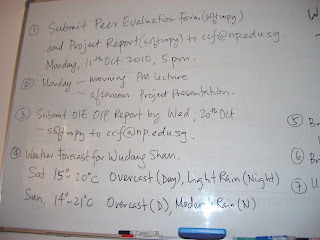 ① Submit Peer Evaluation Form (softcopy)
and Project Report (softcopy) to ccf@np.edu.sg.
Monday, 11th Oct 2010, 5 pm.
② Monday - morning PM Lecture
- afternoon Project Presentation.
③ Submit OIE OIP Report by Wed, 20th Oct
- softcopy to ccf@np.edu.sg.
④ Weather Forecast for Wudang Shan.
Sat 15°-20°C Overcast (Day), Light Rain (Night)
Sun, 14°-21°C Overcast (D), Moderate Rain (N)
W
⑤ Br
⑥ Br
⑦ U